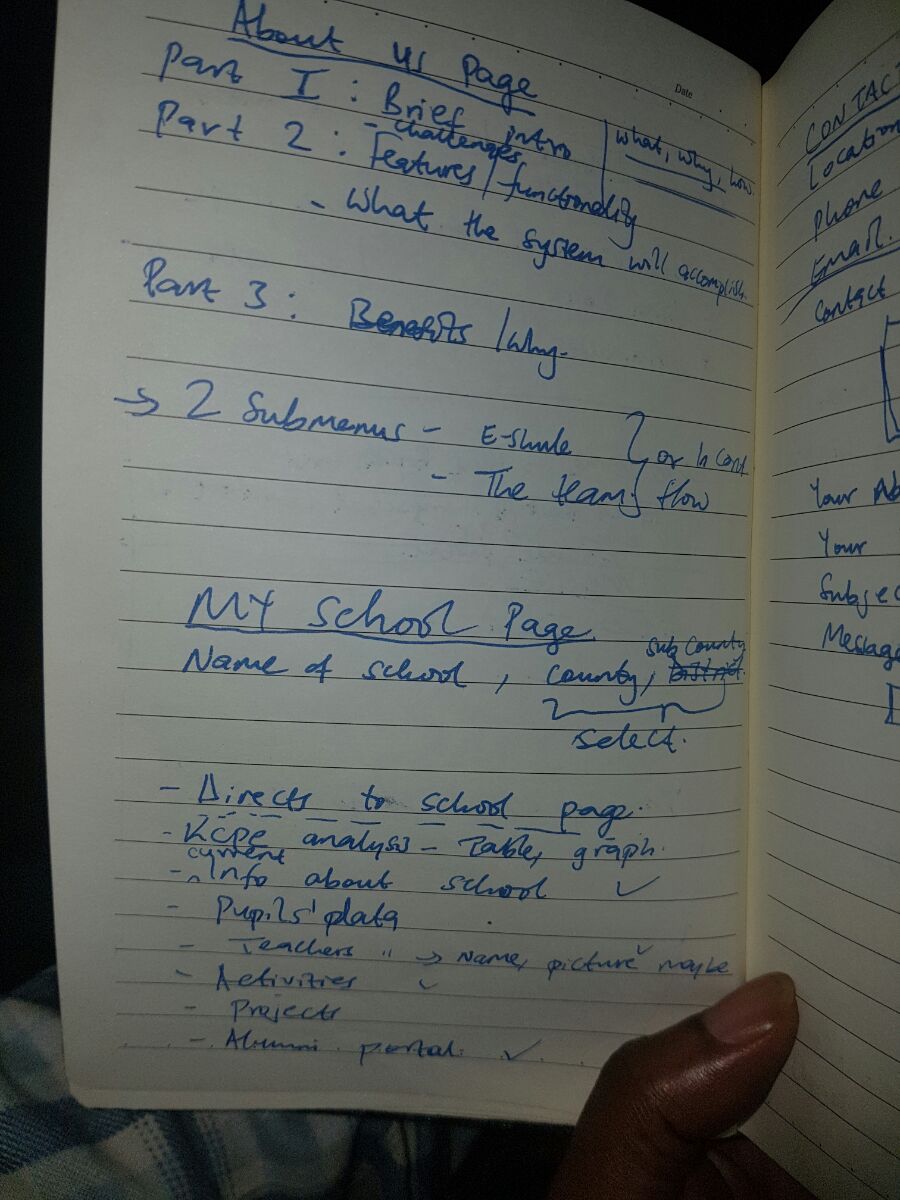 About us Page
Date
Part I : Brief intro | what, why, how
- challenges
Part 2 : Features / functionality
- What the system will accomplish.
Part 3 : Benefits / Why.
→ 2 Submenus - E-shule } or in cont
- The team } flow
MY School Page
sub county
Name of school , county, District.
select.
- Directs to school page.
- KCPE analysis - Table, graph.
current
- ^ Info about school ✓
- Pupils' data
- Teachers " → Name, picture maybe ✓
- Activities ✓
- Projects
- Alumni portal. ✓
CONTACT
Location
Phone
Email.
Contact
Your
Your
Subjec
Message